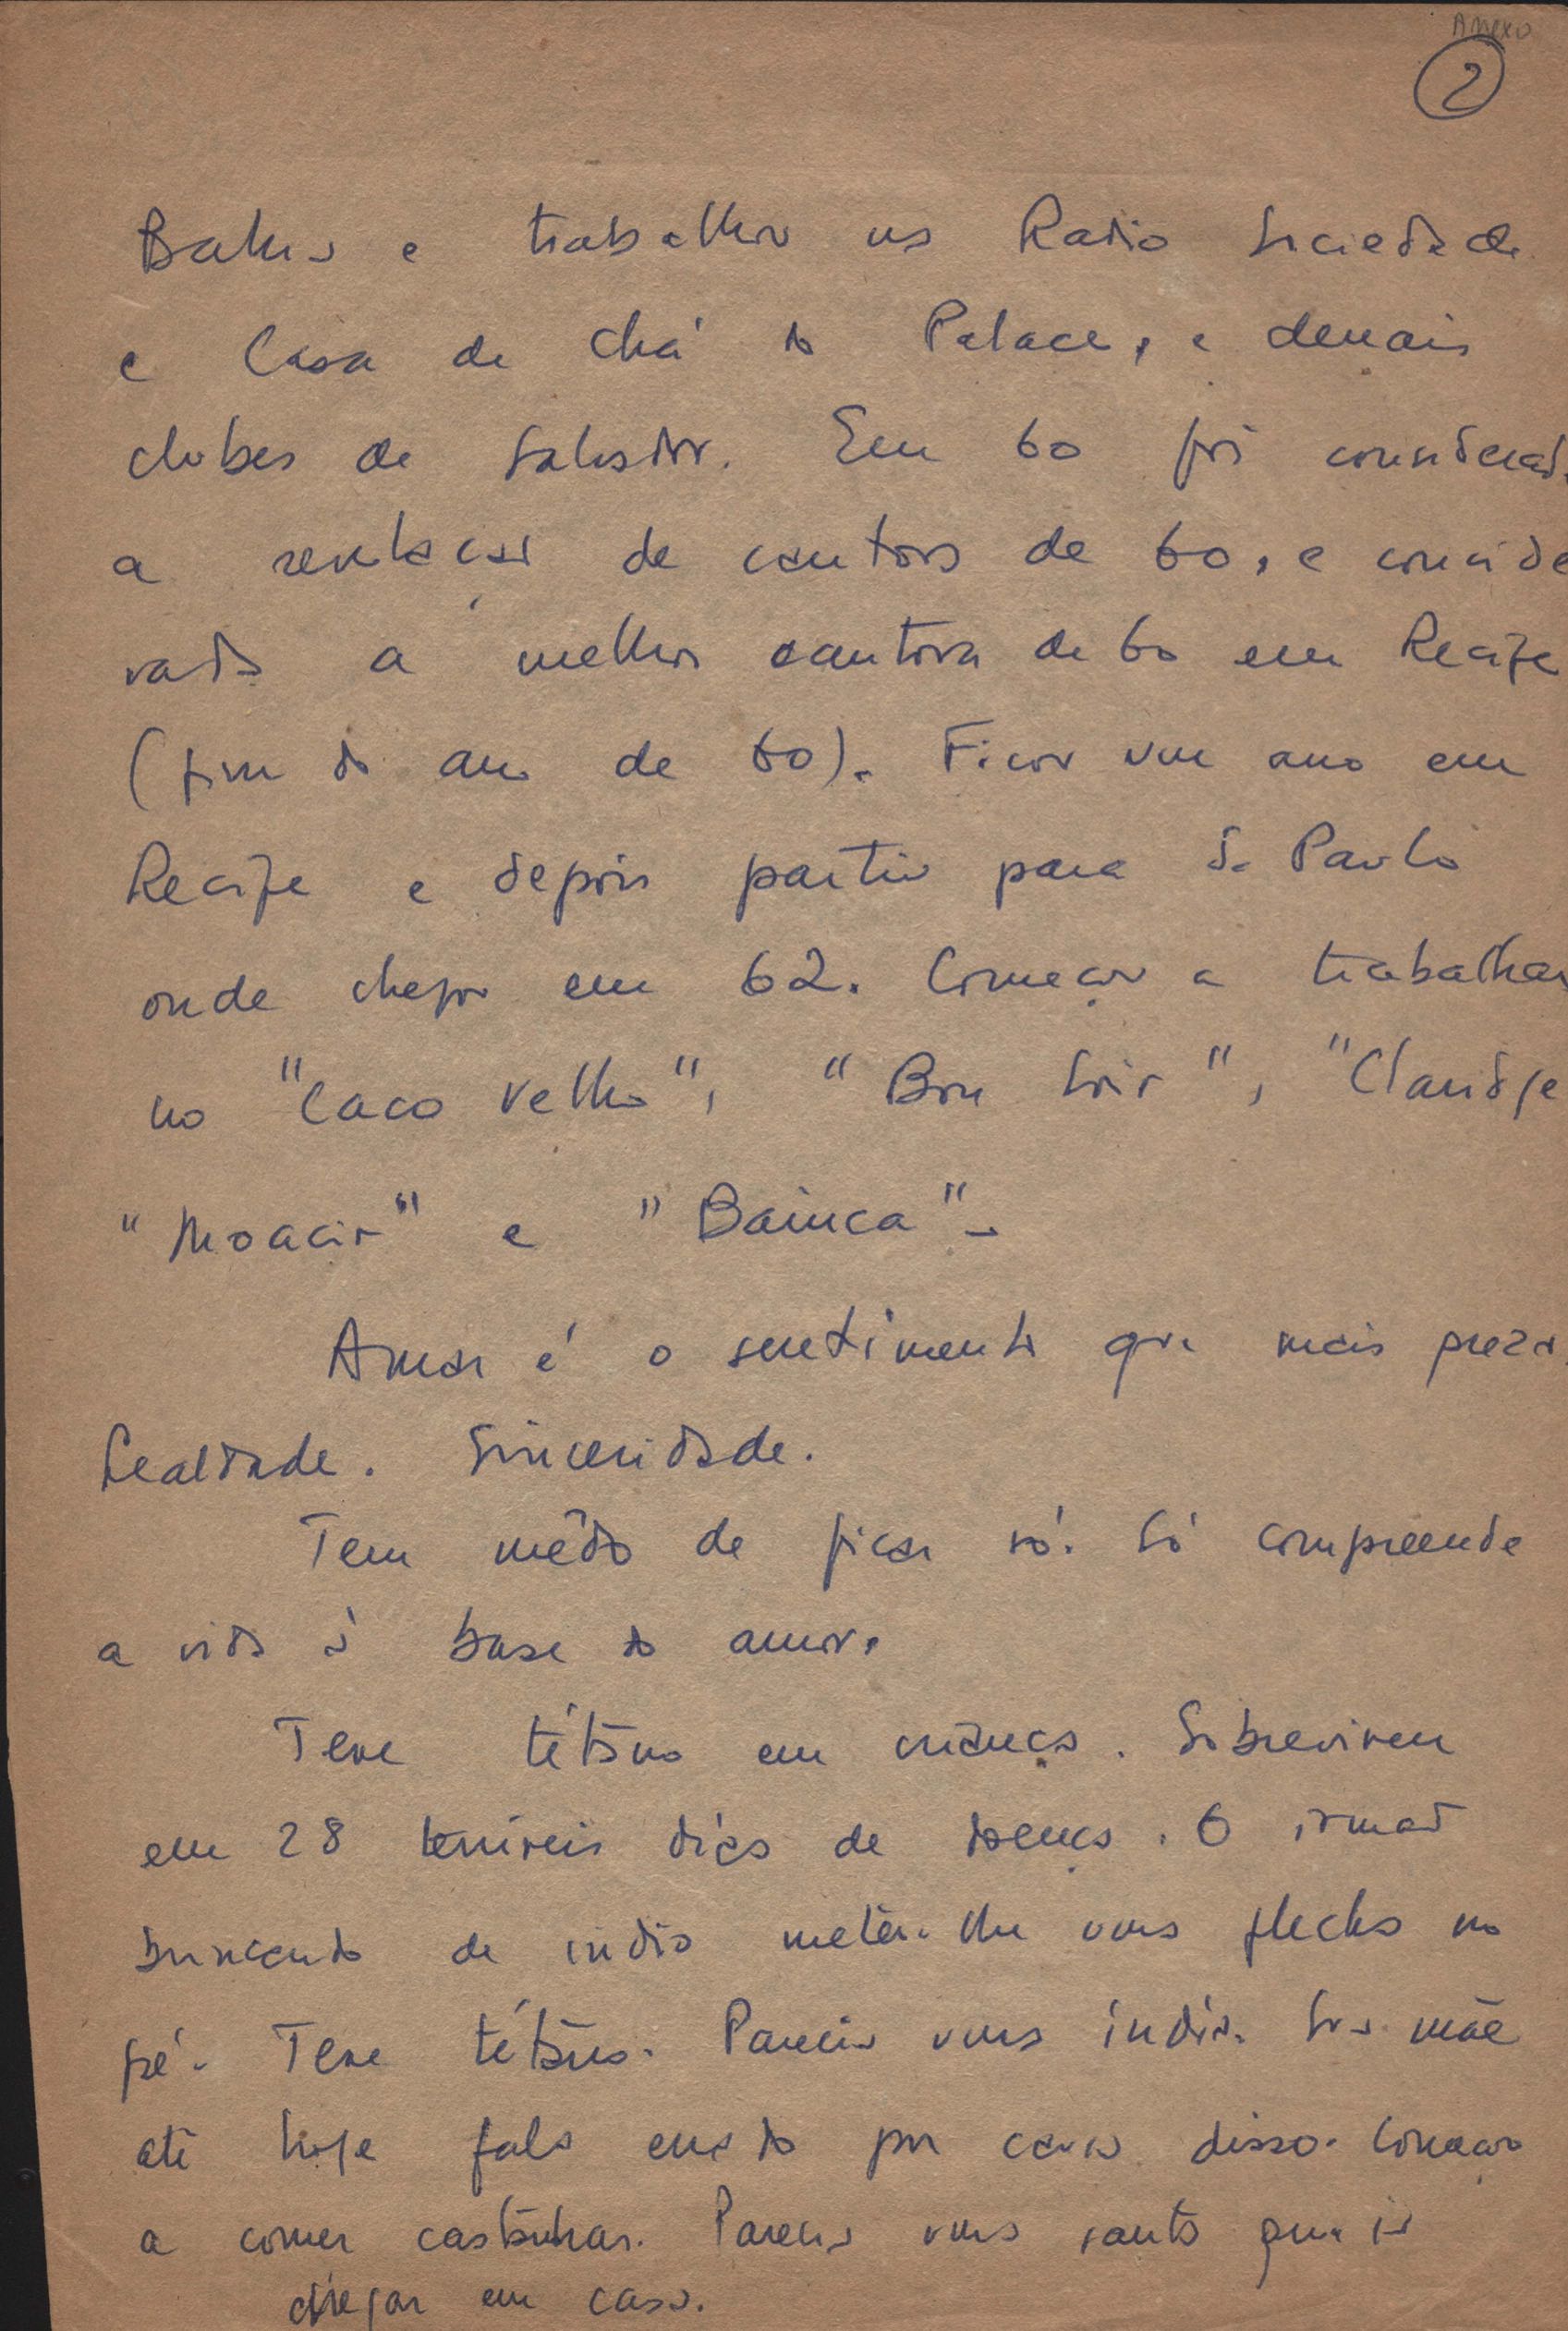 Anexo
2
Bahia e trabalhou na Radio Sociedade
e Casa de chá do Palace, e demais
clubes de Salvador. Em 60 foi considerad
a revelação de cantora de 60, e conside
rada a melhor cantora de 60 em Recife
(fim do ano de 60). Ficou um ano em
Recife e depois partiu para S. Paulo
onde chegou em 62. Começou a trabalhar
no "Caco Velho", "Bon Soir", "Claridge
"Moacir" e "Baiuca" -
Amor é o sentimento que mais preza
Lealdade. Sinceridade.
Tem mêdo de ficar só. Só compreende
a vida à base do amor.
Teve tétano em criança. Sobreviveu
em 28 terríveis dias de doença. O irmão
brincando de indio meteu-lhe uma flecha no
pé. Teve tétano. Parecia uma índia. Sua mãe
até hoje fala por causa disso. Começou
a comer castanhas. Parecia uma santa que ia
chegar em casa.